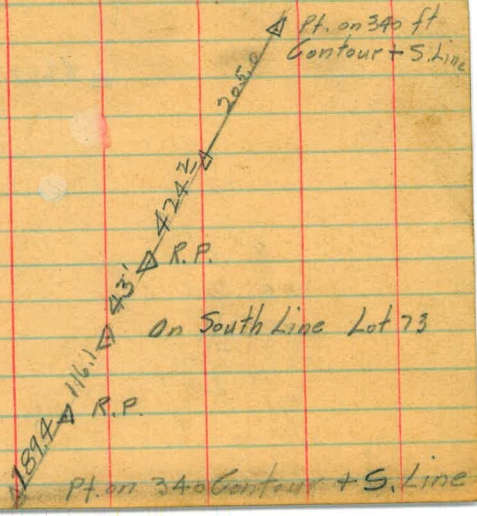 Pt. on 340 ft
Contour + S. Line
205.0
424.2
R.P.
43'
On South Line Lot 73
116.1
R.P.
189.4
Pt. on 340 Contour + S. Line